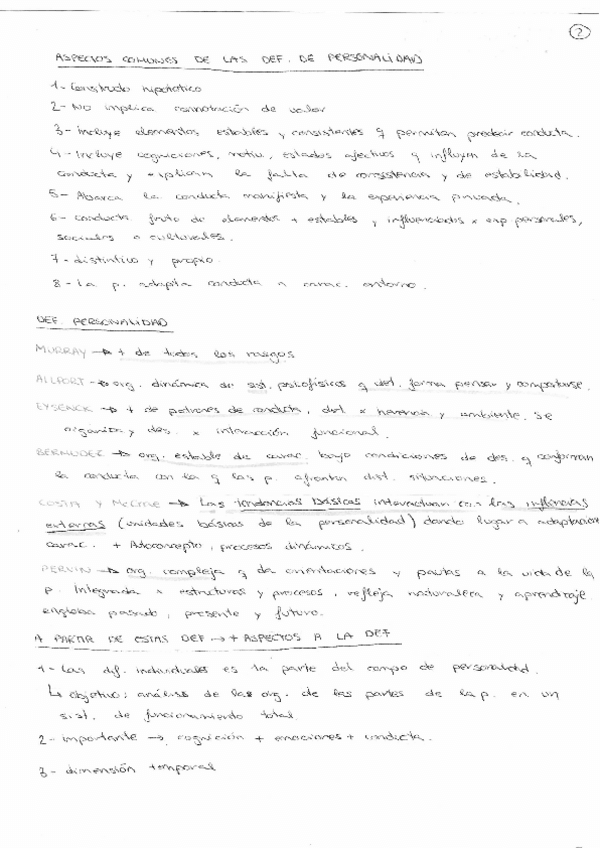 2
ASPECTOS COMUNES DE LAS DEF. DE PERSONALIDAD
1- Constructo hipotético
2- NO implica connotación de valor
3- incluye elementos estables y consistentes q permitan predecir conducta.
4- Incluye cogniciones, motiv, estados afectivos q influyen de la
conducta y explican la falta de consistencia y de estabilidad.
5- Abarca la conducta manifiesta y la experiencia privada.
6- conducta fruto de elementos + estables y influenciados x exp personales,
sociales o culturales.
7- distintivo y propio
8- La p. adapta conducta a carac. entorno.
DEF. PERSONALIDAD
MURRAY → + de todos los rasgos
ALLPORT → org. dinámica de sist. psicofísicos q det. forma pensar y comportarse.
EYSENCK → + de patrones de conducta, det x herencia y ambiente. Se
organiza y des. x interacción funcional.
BERMUDEZ → org. estable de carac. bajo condiciones de des. q conforman
la conducta con la q las p. afrontan dist. situaciones.
COSTA Y McCrae → Las tendencias básicas interactúan con las influencias
externas (unidades básicas de la personalidad) dando lugar a adaptaciones
carac. + Autoconcepto, procesos dinámicos.
PERVIN → org. compleja q da orientaciones y pautas a la vida de la
p. Integrada x estructuras y procesos, refleja naturaleza y aprendizaje
engloba pasado, presente y futuro.
A PARTIR DE ESTAS DEF → + ASPECTOS A LA DEF
1- Las dif. individuales es la parte del campo de personalidad.
↳ objetivo: análisis de las org. de las partes de la p. en un
sist. de funcionamiento total.
2- importante → cognición + emociones + conducta.
3- dimensión temporal